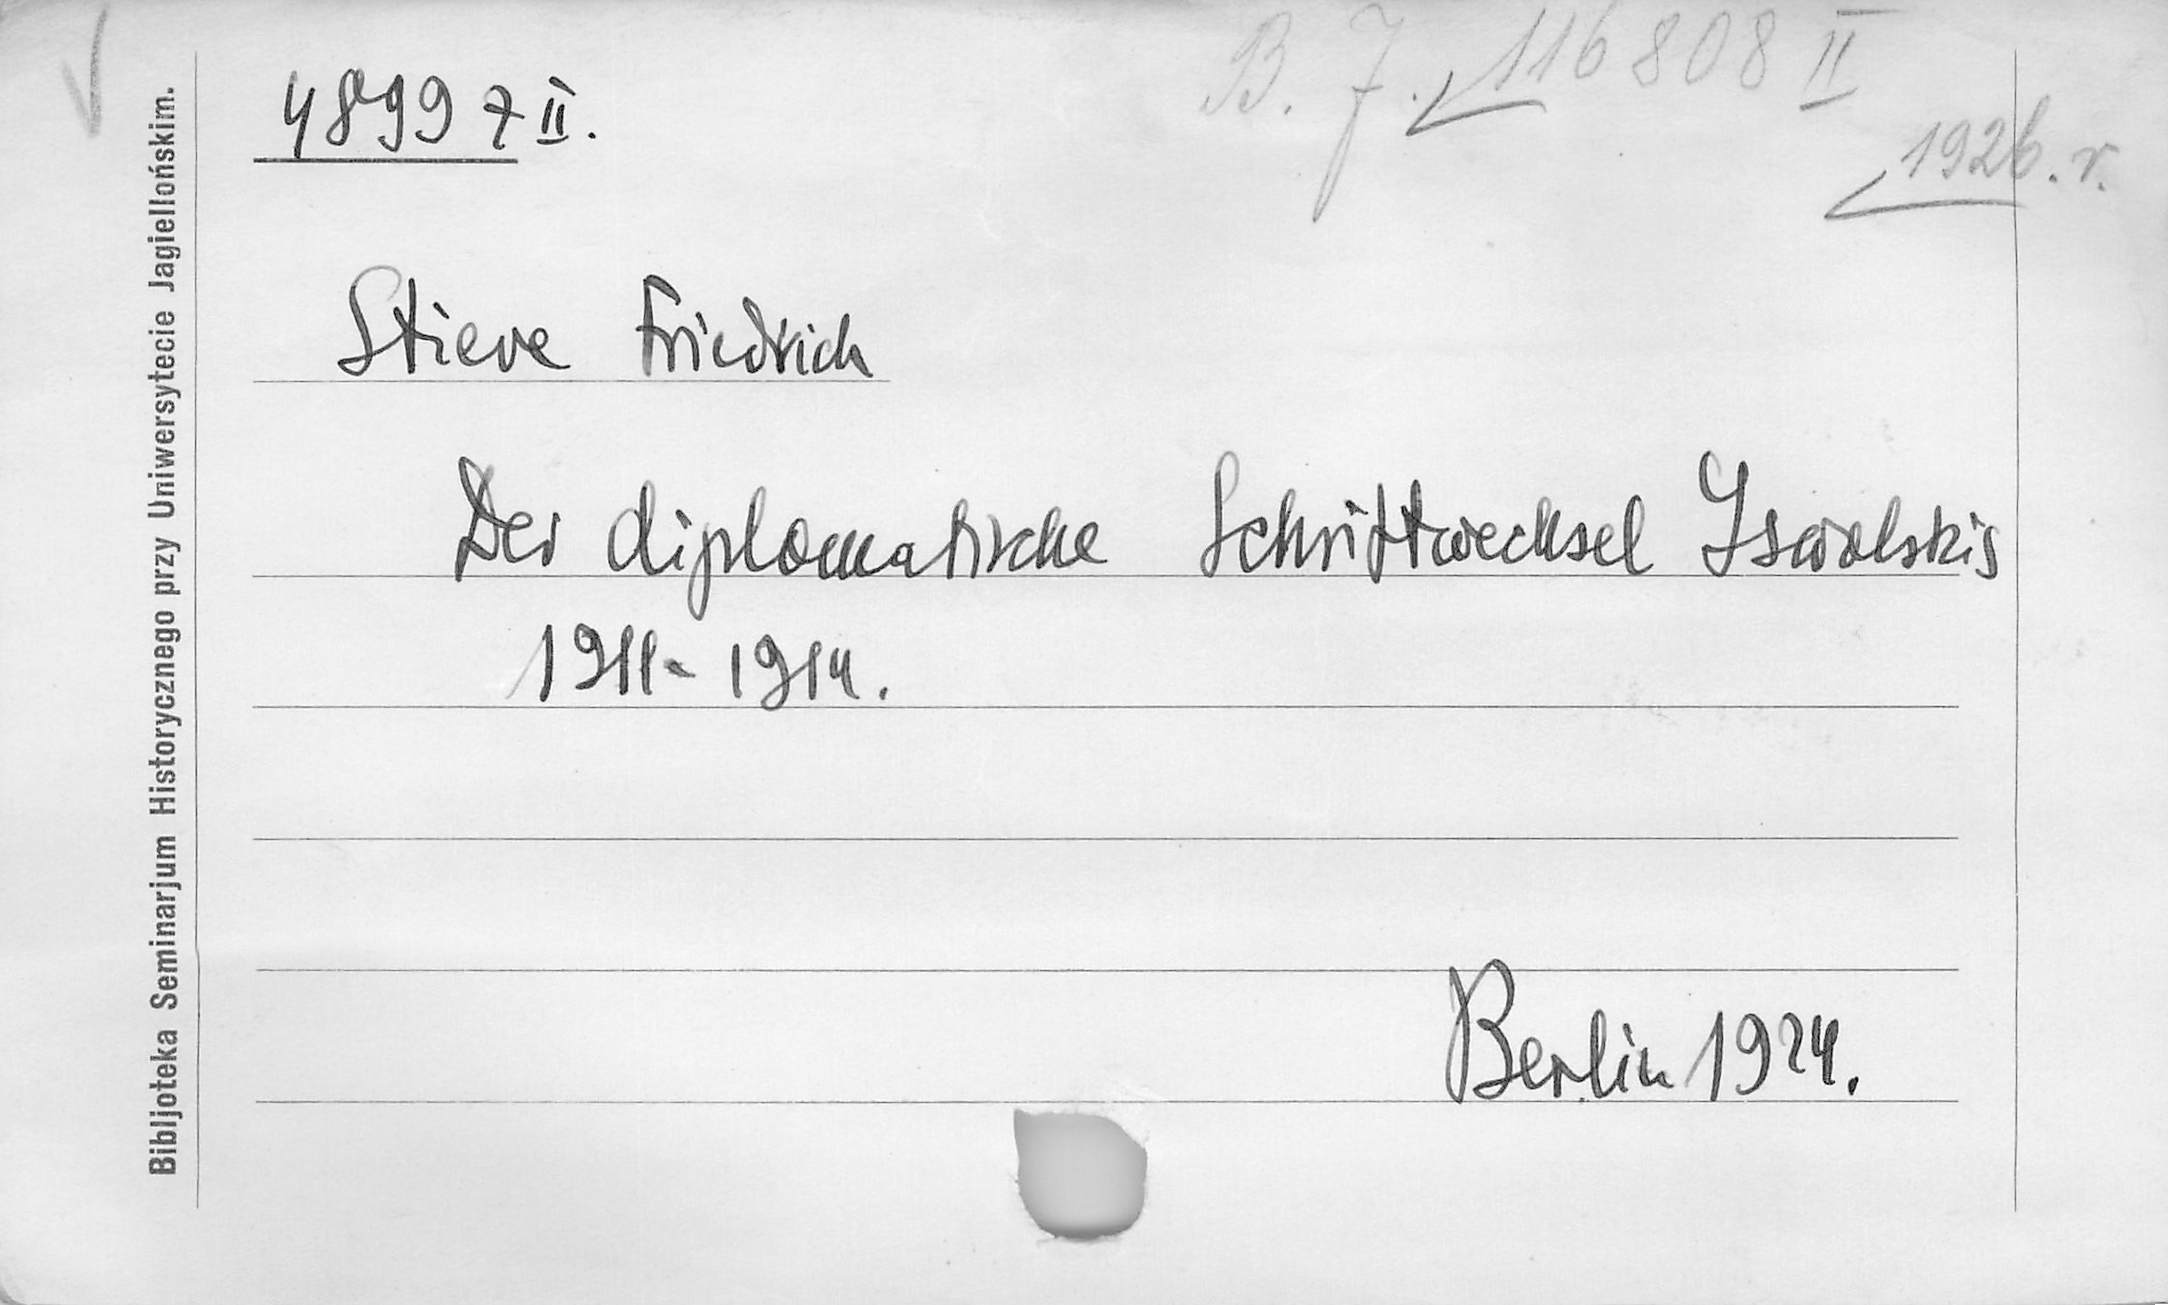 B. J. 116808 II
4899 7 II.
1926. r.
Stieve Friedrich
Der diplomatische Schriftwechsel Iswolskis
1911-1914.
Berlin 1924.
Bibljoteka Seminarjum Historycznego przy Uniwersytecie Jagiellońskim.